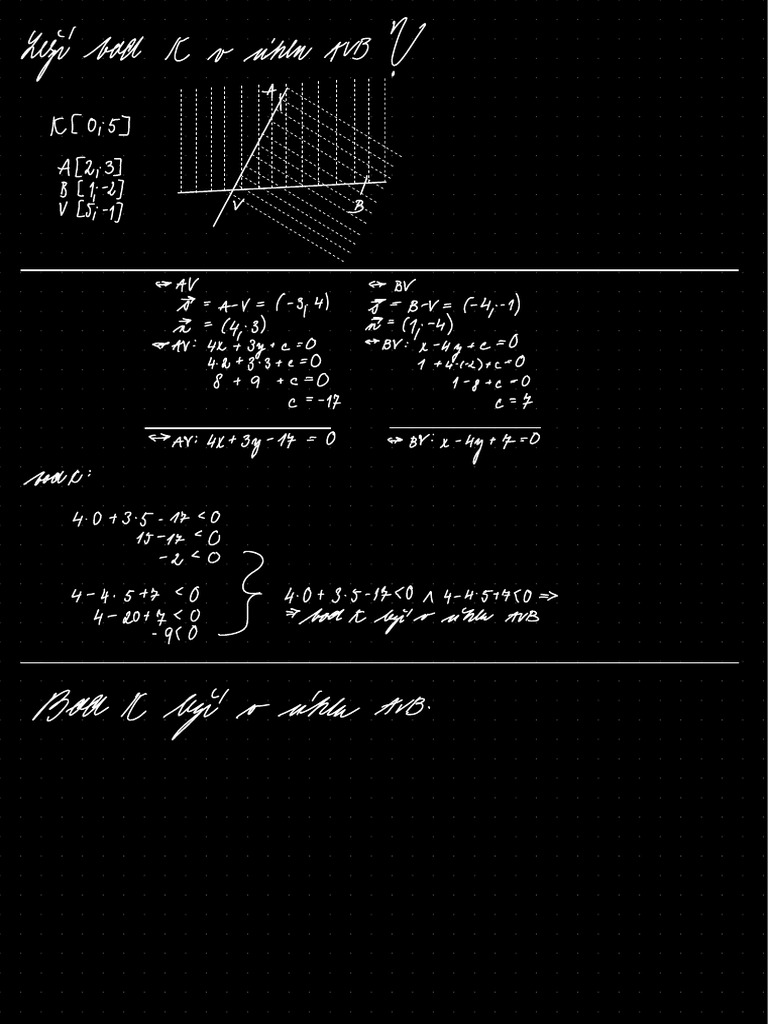 Leží bod K v úhlu AVB?
K[0;5]
A[2;3]
B[1;-2]
V[5;-1]
A
V
B
↔ AV
s⃗ = A-V = (-3; 4)
n⃗ = (4; 3)
↔ AV: 4x + 3y + c = 0
4·2 + 3·3 + c = 0
8 + 9 + c = 0
c = -17
↔ AV: 4x + 3y - 17 = 0
↔ BV
s⃗ = B-V = (-4; -1)
n⃗ = (1; -4)
↔ BV: x - 4y + c = 0
1 + 4·(-2) + c = 0
1 - 8 + c = 0
c = 7
↔ BV: x - 4y + 7 = 0
bod K:
4·0 + 3·5 - 17 < 0
15 - 17 < 0
-2 < 0
4 - 4·5 + 7 < 0
4 - 20 + 7 < 0
-9 < 0
4·0 + 3·5 - 17 < 0 ∧ 4 - 4·5 + 7 < 0 ⇒
⇒ bod K leží v úhlu AVB
Bod K leží v úhlu AVB.